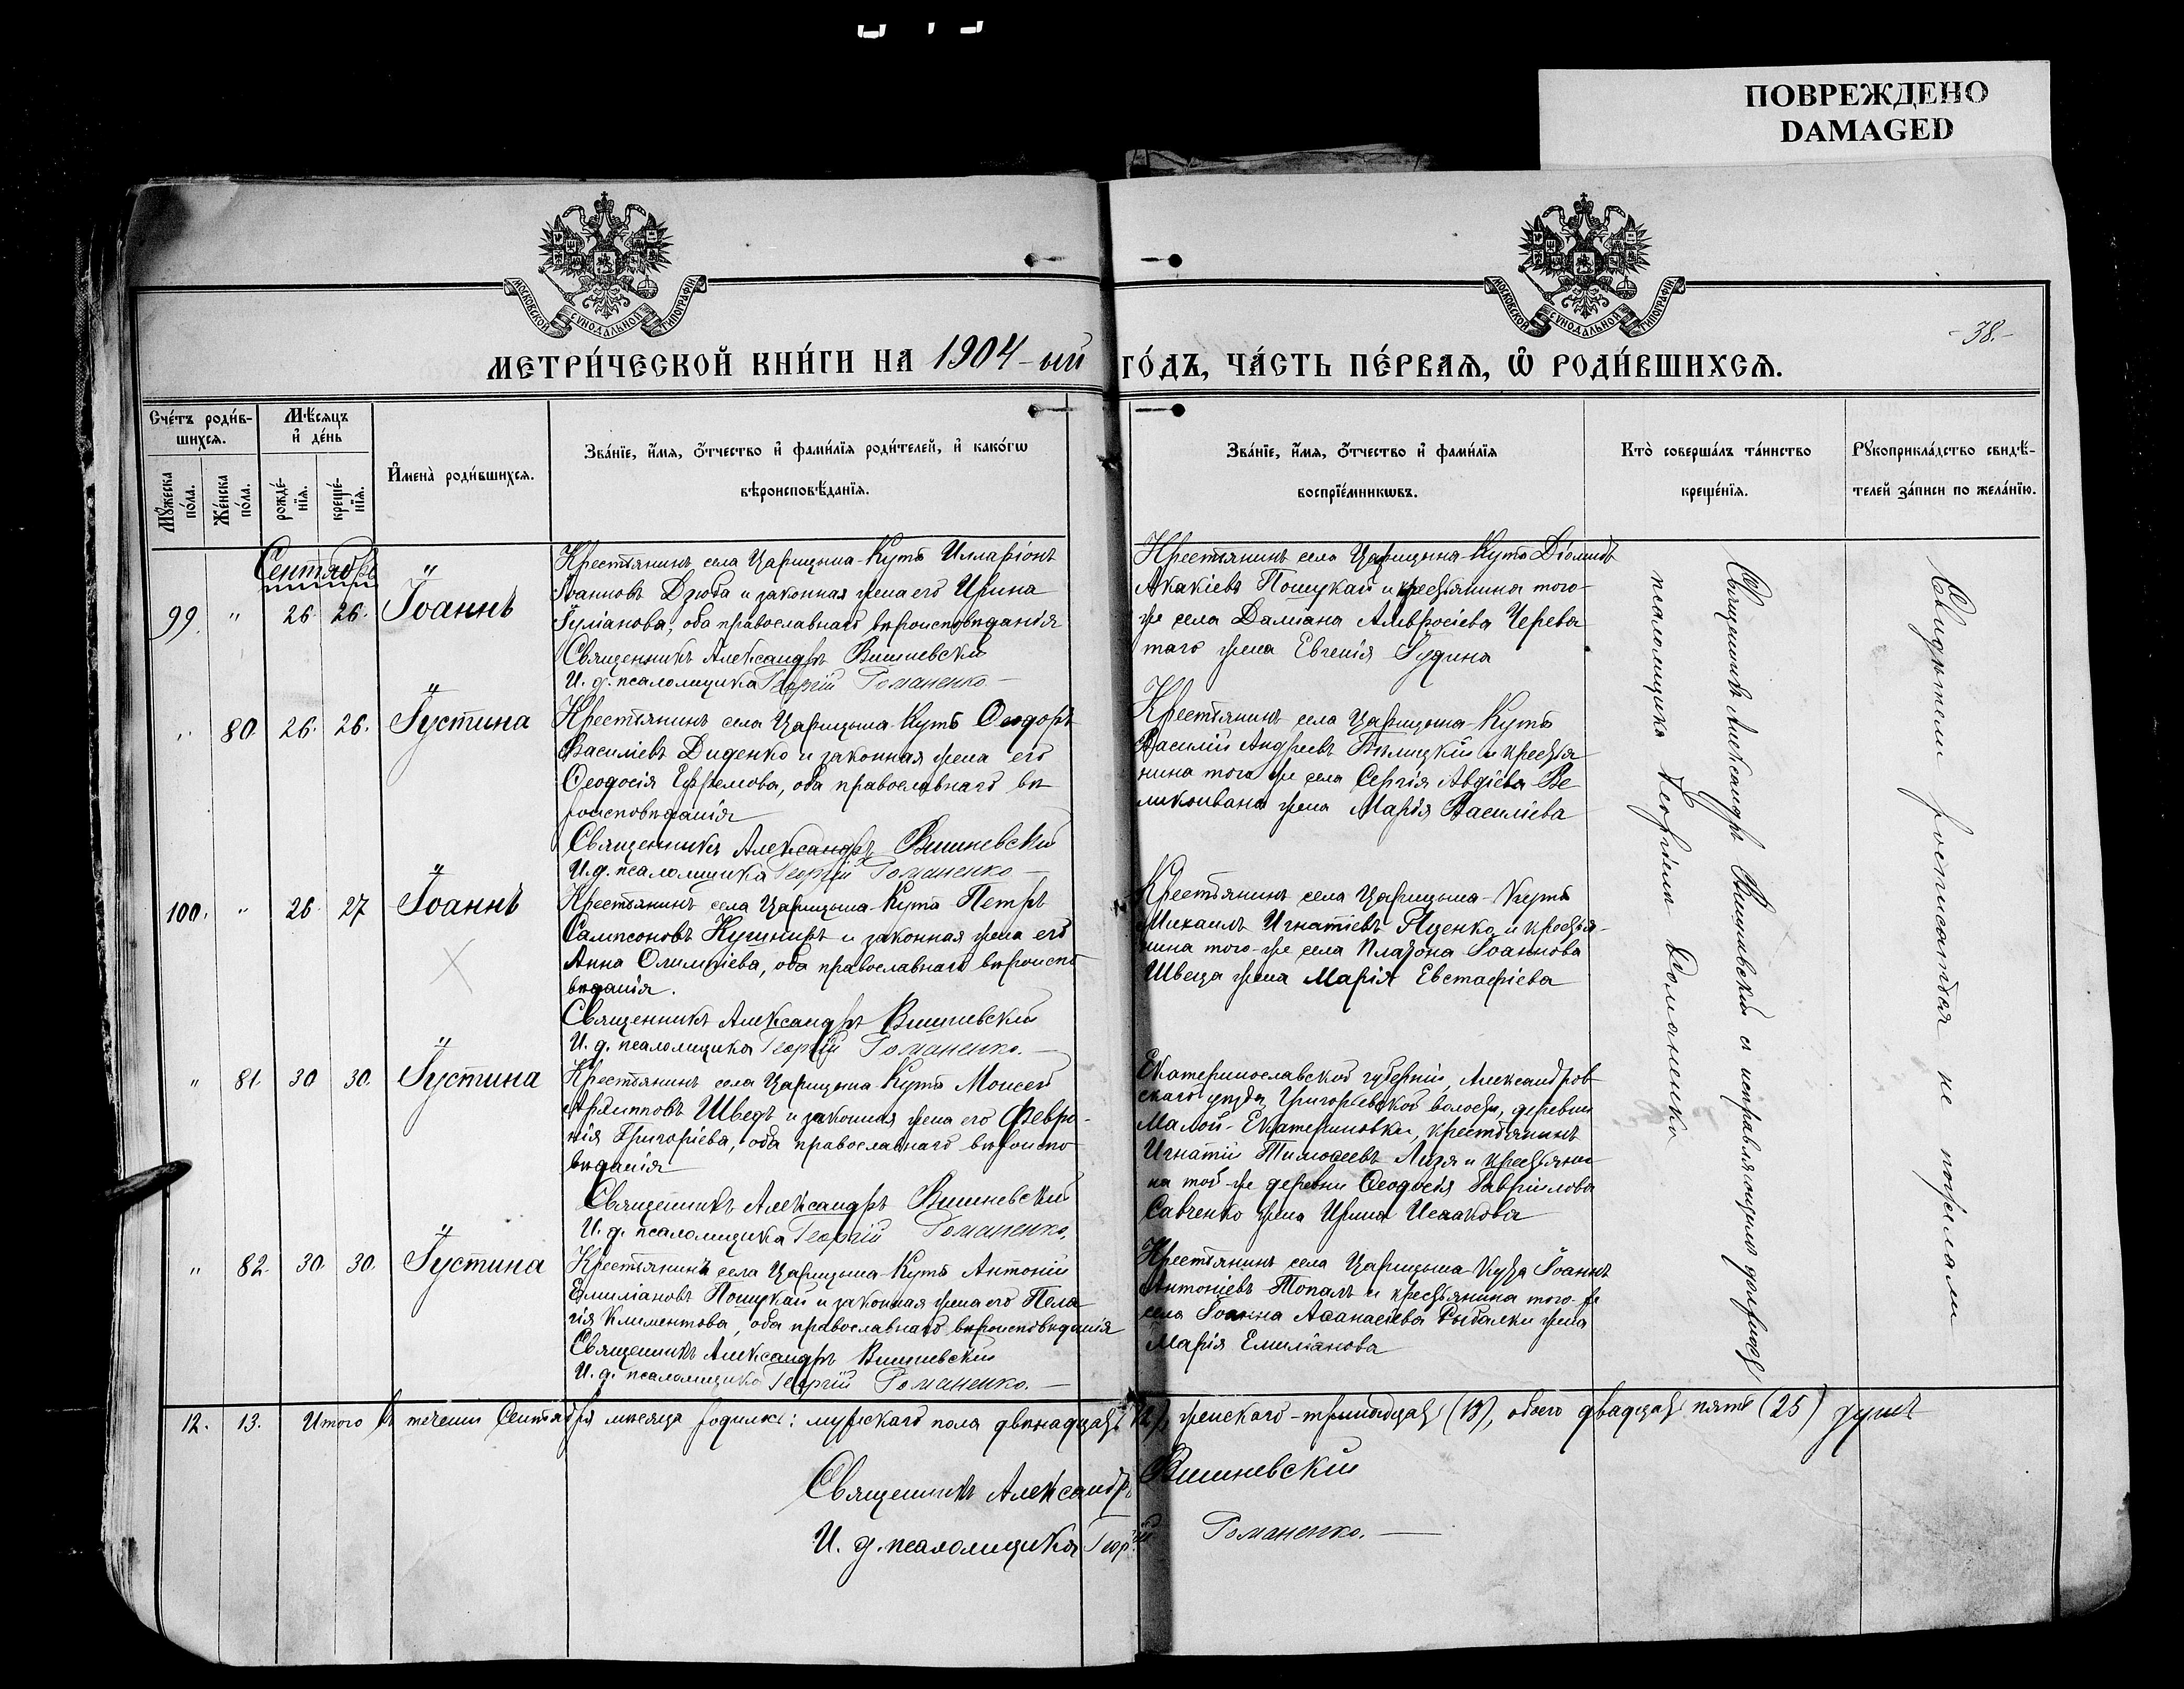 ПОВРЕЖДЕНО
DAMAGED
МОСКОВСКОЙ СѴНОДАЛЬНОЙ ТИПОГРАФІИ
МОСКОВСКОЙ СѴНОДАЛЬНОЙ ТИПОГРАФІИ
-38.-
МЕТРИ́ЧЕСКОЙ КНИ́ГИ НА 1904-ый ГО́ДЪ, ЧА́СТЬ ПЕ́РВАѦ, Ѽ РОДИ́ВШИХСѦ.
Сче́тъ роди́в-
шихсѧ.
Мꙋ́жеска по́ла.
Же́нска по́ла.
Мѣ́сѧцъ
и҆ де́нь
рожде́-нїѧ.
креще́-нїѧ.
И҆мена̀ роди́вшихсѧ.
Зва́нїе, и҆́мѧ, ѻ҆́тчество и҆ фами́лїѧ роди́телей, и҆ како́гѡ
вѣроисповѣ́данїѧ.
Зва́нїе, и҆́мѧ, ѻ҆́тчество и҆ фами́лїѧ
воспрїе́мникѡвъ.
Кто̀ соверша́лъ та́инство
креще́нїѧ.
Рꙋкоприкла́дство свидѣ́-
телей за́писи по жела́нїю.
Сентябрь
99. " 26. 26. Іоаннъ
Крестьянинъ села Царицына-Кута Илларіонъ
Іоанновъ Дзюба и законная жена его Ирина
Іуліанова, оба православнаго вѣроисповѣданія
Священникъ Александръ Вишневскій
И. д. псаломщика Георгій Романенко
Крестьянинъ села Царицына-Кута Діомидъ
Акакіевъ Пошукай и крестьянина того-
же села Даміана Амвросіева Черева
таго жена Евгенія Іудина
" 80. 26. 26. Іустина
Крестьянинъ села Царицына-Кута Ѳеодоръ
Василіевъ Диденко и законная жена его
Ѳеодосія Ефремова, оба православнаго вѣ
роисповѣданія
Священникъ Александръ Вишневскій
И. д. псаломщика Георгій Романенко
Крестьянинъ села Царицына-Кута
Василій Андреевъ Бѣлицкій и крестья
нина того же села Сергія Авдіева Ве
ликоивана жена Марія Василіева
100. " 26. 27 Іоаннъ
Крестьянинъ села Царицына-Кута Петръ
Сампсоновъ Кушниръ и законная жена его
Анна Олимпіева, оба православнаго вѣроиспо
вѣданія.
Священникъ Александръ Вишневскій
И. д. псаломщика Георгій Романенко.
Крестьянинъ села Царицына-Кута
Михаилъ Игнатіевъ Яценко и крестья-
нина того-же села Платона Іоаннова
Швеца жена Марія Евстафіева
" 81. 30 30. Іустина
Крестьянинъ села Царицына-Кута Моисей
Архипповъ Шведъ и законная жена его Февро-
нія Григоріева, оба православнаго вѣроиспо
вѣданія
Священникъ Александръ Вишневскій
И. д. псаломщика Георгій Романенко.
Екатеринославской губерніи, Александров
скаго уѣзда, Григорьевской волости, деревни
Малой-Екатериновки, крестьянинъ
Игнатій Тимоѳеевъ Лизя и крестьяни
на той-же деревни Ѳеодосія Гавріилова
Савченко жена Ирина Исаакова
" 82. 30. 30. Іустина
Крестьянинъ села Царицына-Кута Антоній
Емиліановъ Пошукай и законная жена его Пела
гія Климентова, оба православнаго вѣроисповѣданія
Священникъ Александръ Вишневскій
И. д. псаломщика Георгій Романенко.
Крестьянинъ села Царицына-Кута Іоаннъ
Антоніевъ Топалъ и крестьянина того-же
села Іоанна Аѳанасіева Рыбалки жена
Марія Емиліанова
Священникъ Александръ Вишневскій съ исправляющимъ должность
псаломщика Георгіемъ Романенко
Свидѣтели росписаться не пожелали
12. 13. Итого въ теченіи Сентября мѣсяца родилось: мужскаго пола двѣнадцать (12), женскаго-тринадцать (13), обоего двадцать пять (25) душъ
Священникъ Александръ Вишневскій
И. д. псаломщика Георгій Романенко.